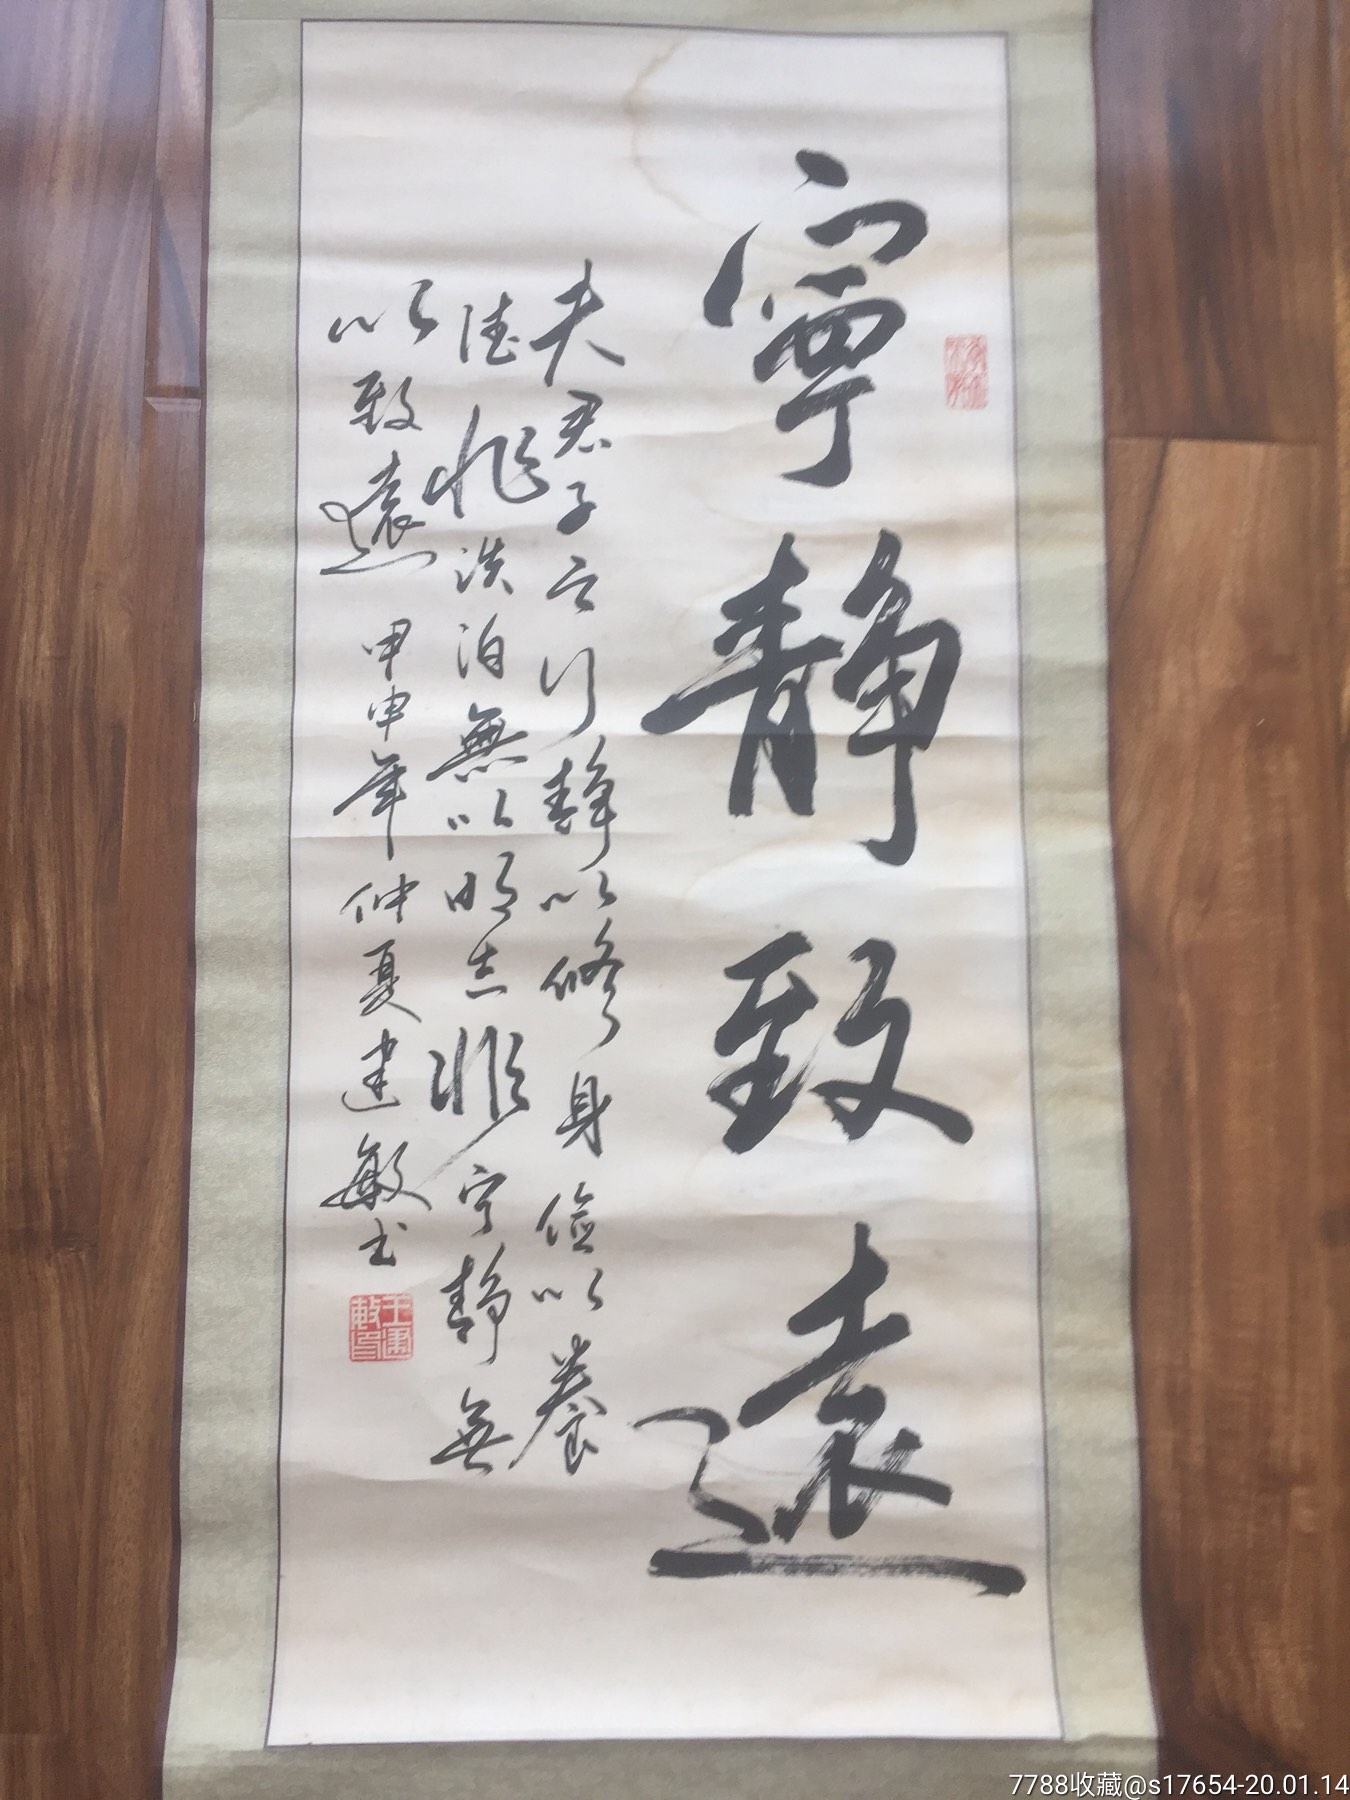 寧靜致遠
夫君子之行静以修身儉以養
德非淡泊無以明志非宁静無
以致遠 甲申年仲夏建敏书
王建敏印
7788收藏@s17654-20.01.14